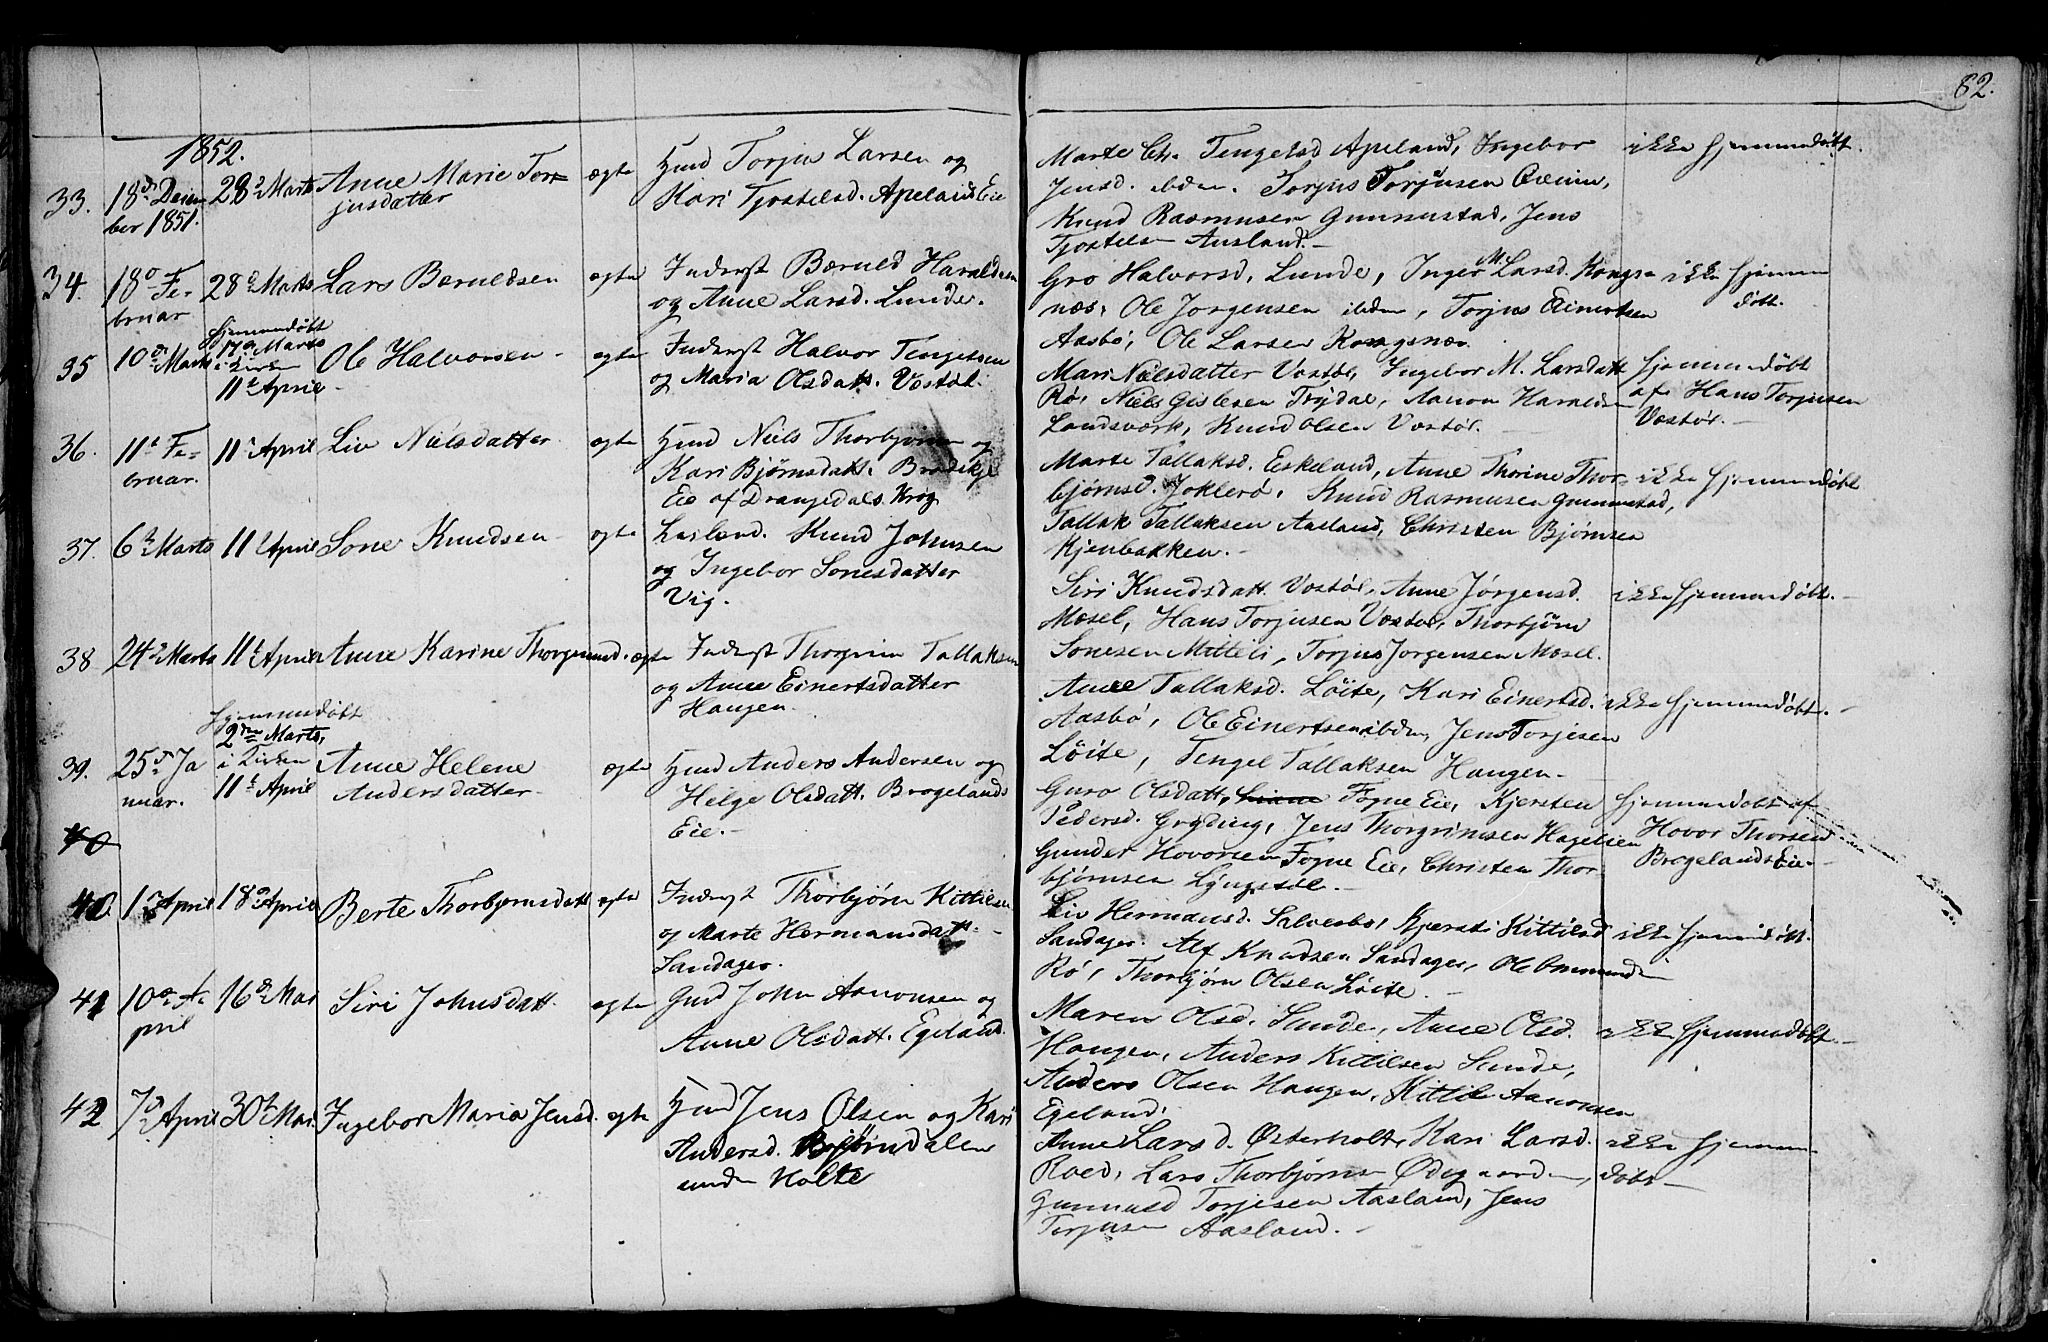 82.
1852.
33. 18de Decem 28de Marts Anne Marie Tor- ægte Hmd Torju Larsen og
ber 1851. jusdatter Kari Tjostelsd. Apeland Eie
Marte Ch. Tengelsd Apeland, Ingebor ikke hjemmedøbt.
Jensd. ibdm. Torjus Torjusen
Knud Rasmusen Gunnustad, Jens
Tjostelsen Aasland.
34. 18de Fe- 28de Marts Lars Beruldsen ægte Inderst Bæruld Haraldsen
bruar og Anne Larsd. Lunde.
Gro Halvorsd. Lunde, Inger M. Larsd. Kongs- ikke hjemme
næs, Ole Jørgensen ibdm, Torjus Einertsen døbt.
Aasbø, Ole Larsen Kongsnæs
35 10de Marts hjemmedøbt 17de Marts i Kirken 11te April Ole Halvorsen ægte Inderst Halvor Tengelsen
og Maria Olsdatt. Vostøl.
Mari Nielsdatter Vostøl, Ingebor M. Larsdatt hjemmedøbt
Rø, Niels Gislesen Trydal, Aanon Haraldsen af Hans Torjusen
Landsværk, Knud Olsen Vostøl. Vostøl.
36. 11te Fe- 11te April Liv Nielsdatter ægte Hmd Niels Thorbjørnsen og
bruar. Kari Bjørnsdatt.
Eie af Drangedals Krog
Marte Tallaksd. Eskeland, Anne Thorine Thor- ikke hjemmedøbt
bjørnsd. Joklerø, Knud Rasmusen Gunnustad,
Tallak Tallaksen Aasland, Christen Bjørnsen
Kjenbakken.
37. 6te Marts 11te April Sone Knudsen ægte Leilend. Knud Johnsen
og Ingebor Sonesdatter
Vig.
Siri Knudsdatt. Vostøl, Anne Jørgensd. ikke hjemmedøbt.
Mosel, Hans Torjusen Vostøl, Thorbjørn
Sonesen Mitteli, Torjus Jørgensen Mosel.
38 24de Marts 11te April Anne Karine Thorgrimsd. ægte Inderst Thorgrim Tallaksen
og Anne Einertsdatter
Haugen.
Anne Tallaksd. Løite, Kari Einertsd. ikke hjemmedøbt.
Aasbø, Ole Einertsen ibdm, Jens Torjesen
Løite, Tengel Tallaksen Haugen.
39. 25de Ja hjemmedøbt 2den Marts, i Kirken 11te April Anne Helene ægte Hmd Anders Andersen og
nuar. Andersdatter Helge Olsdatt. Brogelands
Eie.
Guro Olsdatt, Fogne Eie, Kjersten hjemmedøbt af
Pedersd. Gryding, Jens Thorgrimsen Hagelien Hovor Thorsen
Gunder Hovorsen Fogne Eie, Christen Thor- Brogelands Eie
bjørnsen Lyngstøl.
40
40. 1ste April 18de April Berte Thorbjørnsdatt ægte Inderst Thorbjørn Kittilsen
og Marte Hermansdatt.
Sandager.
Liv Hermansd. Salvesbø, Kjersti Kittilsd ikke hjemmedøbt.
Sandager. Alf Knudsen Sandager, Ole Ommunds
Rø, Thorbjørn Olsen Løite.
41 10de A- 16de Mai Siri Johnsdatt. ægte Gmd John Aanonsen og
pril Anne Olsdatt. Egeland.
Maren Olsd. Sunde, Anne Olsd. ikke hjemmedøbt
Haugen, Anders Kittilsen Sunde,
Anders Olsen Haugen, Kittil Aanonsen
Egeland.
42 7de April 30te Mai Ingebor Maria Jensd. ægte Hmd Jens Olsen og Kari
Andersd. Bjørndalen
under Holte
Anne Larsd. Østerholt, Kari Larsd. ikke hjemme-
Roed, Lars Thorbjørnsen Ødegaarden, døbt
Gunnuld Torjesen Aasland, Jens
Torjusen Aasland.